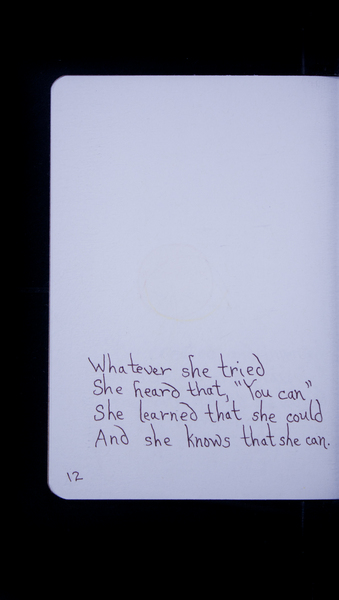 Whatever she tried
She heard that, "You can"
She learned that she could
And she knows that she can.
12